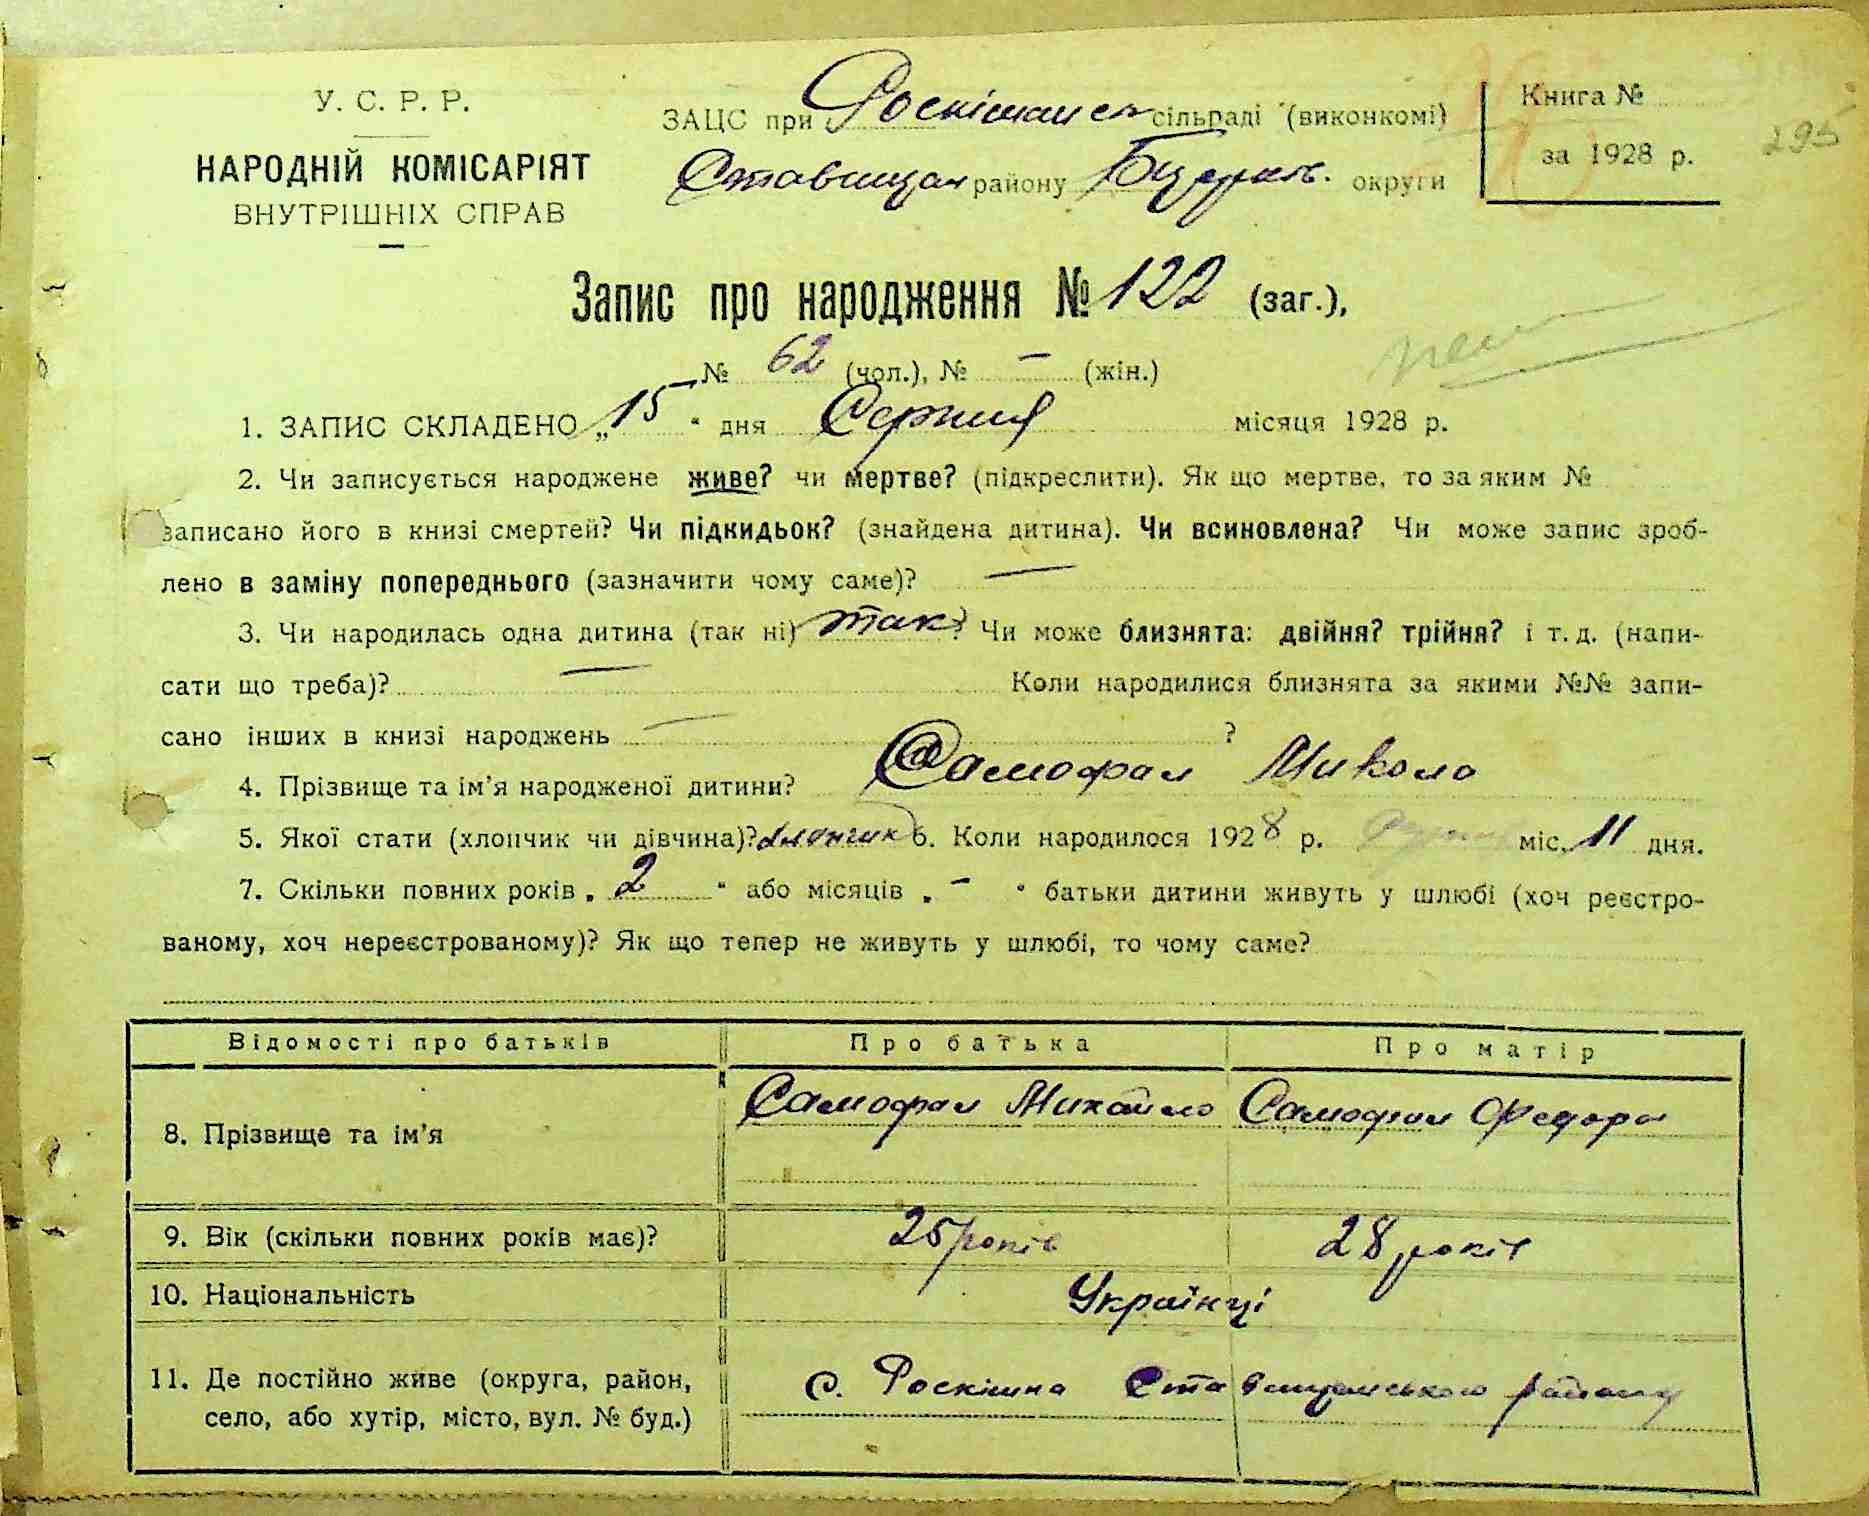 У. С. Р. Р.
НАРОДНІЙ КОМІСАРІЯТ
ВНУТРІШНІХ СПРАВ
ЗАЦС при Роскішанск сільраді (виконкомі)
Ставищан району Бцеркв. округи
Книга №
за 1928 р.
295
Запис про народження № 122 (заг.),
№ 62 (чол.), № — (жін.)
1. ЗАПИС СКЛАДЕНО „15" дня Серпня місяця 1928 р.
2. Чи записується народжене живе? чи мертве? (підкреслити). Як що мертве, то за яким №
записано його в книзі смертей? Чи підкидьок? (знайдена дитина). Чи всиновлена? Чи може запис зроб-
лено в заміну попереднього (зазначити чому саме)? —
3. Чи народилась одна дитина (так ні) так? Чи може близнята: двійня? трійня? і т. д. (напи-
сати що треба)? — Коли народилися близнята за якими №№ запи-
сано інших в книзі народжень — ?
4. Прізвище та ім'я народженої дитини? Самофал Микола
5. Якої стати (хлопчик чи дівчина)? хлопчик 6. Коли народилося 1928 р. Серпня міс. 11 дня.
7. Скільки повних років „ 2 " або місяців „ - " батьки дитини живуть у шлюбі (хоч реєстро-
ваному, хоч нереєстрованому)? Як що тепер не живуть у шлюбі, то чому саме?
Відомості про батьків Про батька Про матір
8. Прізвище та ім'я Самофал Михайло Самофал Федора
9. Вік (скільки повних років має)? 25 років 28 років
10. Національність Українці
11. Де постійно живе (округа, район,
село, або хутір, місто, вул. № буд.) с. Роскішна Ставищанського району